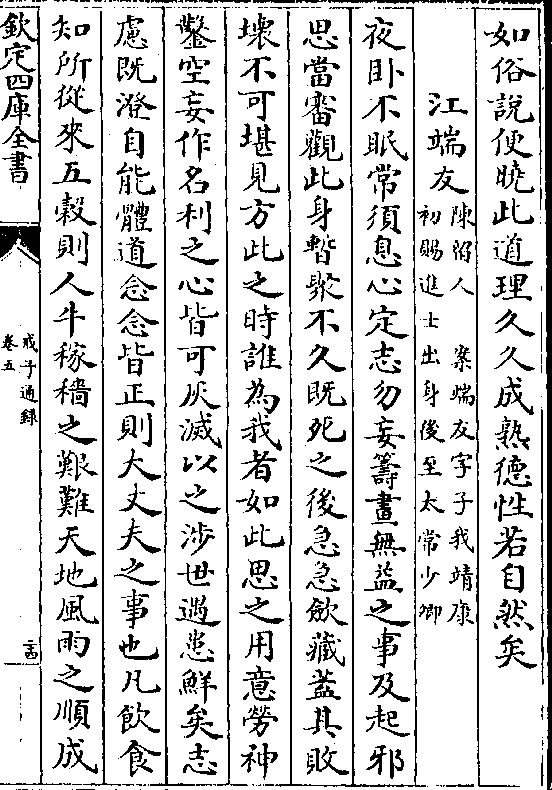 如俗說便曉此道理久久成熟德性若自然矣
江端友陳留人　案端友字子我靖康
初賜進士出身後至太常少卿
夜卧不眠常須息心定志勿妄籌畫無益之事及起邪
思當審觀此身暫聚不久既死之後急急斂藏蓋其敗
壞不可堪見方此之時誰為我者如此思之用意勞神
鑿空妄作名利之心皆可灰滅以之涉世過患鮮矣志
慮既澄自能體道念念皆正則大丈夫之事也凡飲食
知所從來五穀則人牛稼穡之艱難天地風雨之順成
欽定四庫全書
戒子通録
卷五